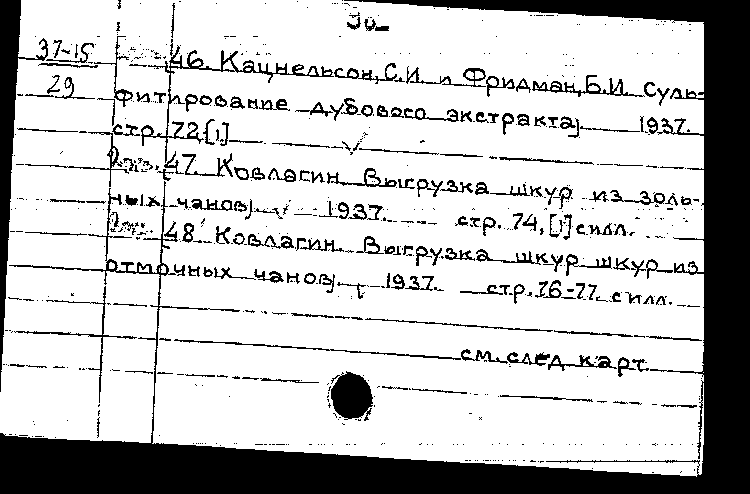 30
37-15
29
46. Кацнельсон, С.И. и Фридман, Б.И. Суль-
фитирование дубового экстракта. 1937.
стр. 72,[1]
47. Ковлагин. Выгрузка шкур из золь-
ных чанов. 1937. стр. 74,[1] с илл.
48. Ковлагин. Выгрузка шкур шкур из
отмочных чанов. 1937. стр. 76-77. с илл.
см. след карт.